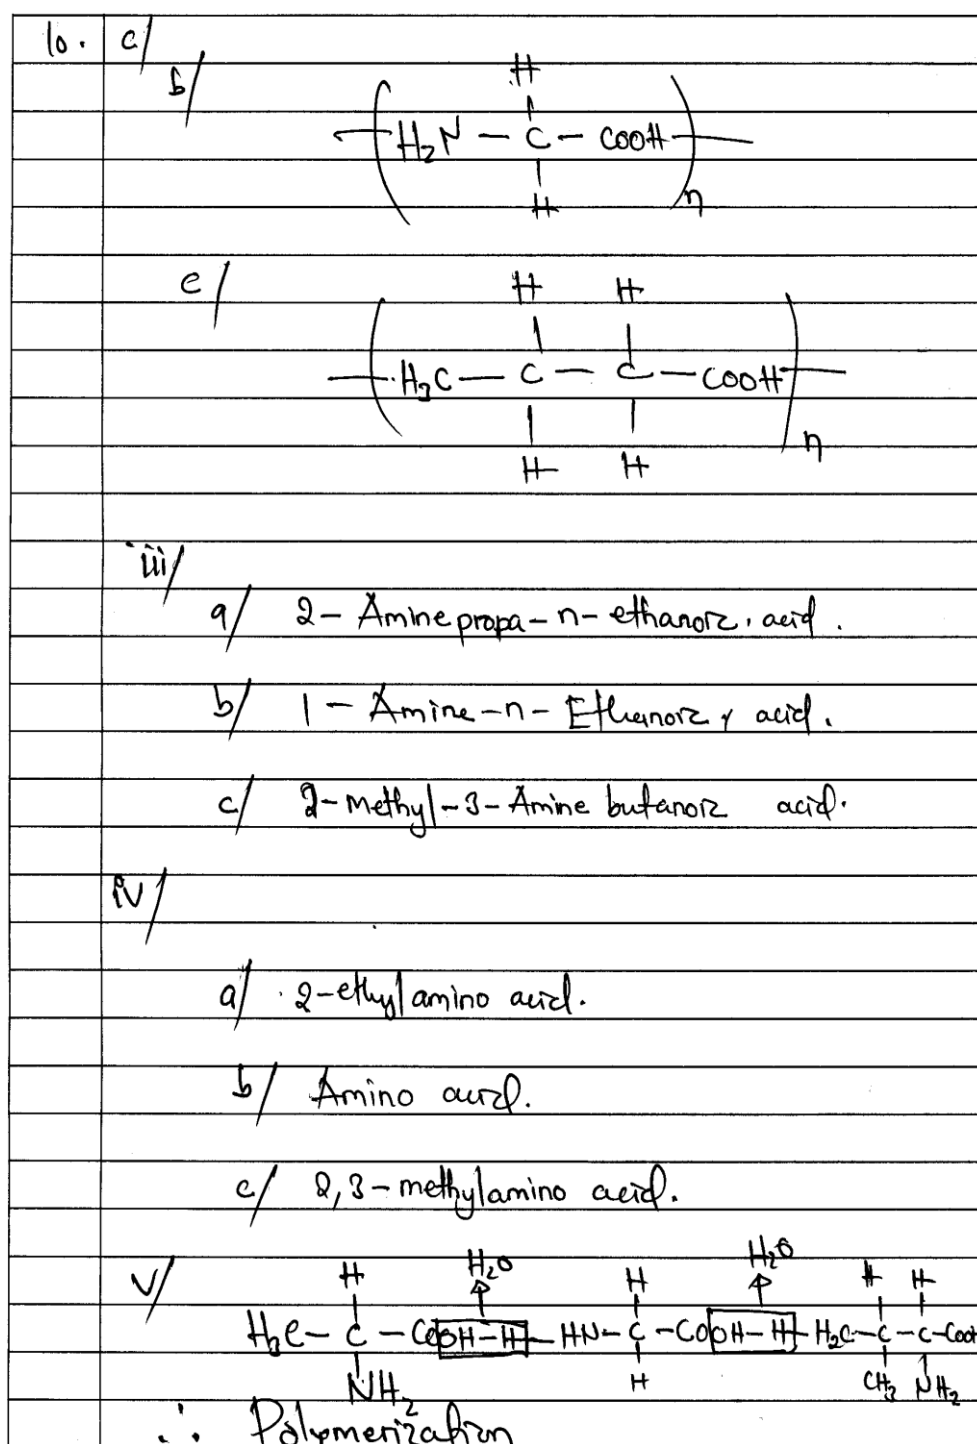 10. c/
b/
H
( H₂N — C — COOH )n
H
c/
H H
( H₃C — C — C — COOH )n
H H
iii/
a/ 2- Amine propa-n-ethanoic acid.
b/ 1 - Amine-n- Ethanoic acid.
c/ 2-methyl-3-Amine butanoic acid.
iv/
a/ 2-ethylamino acid.
b/ Amino acid.
c/ 2,3-methylamino acid.
H₂O H₂O
v/ H H H H
H₃C- C -COOH-H-HN-C-COOH-H-H₂C-C-C-COOH
NH₂ H CH₃ NH₂
∴ Polymerization